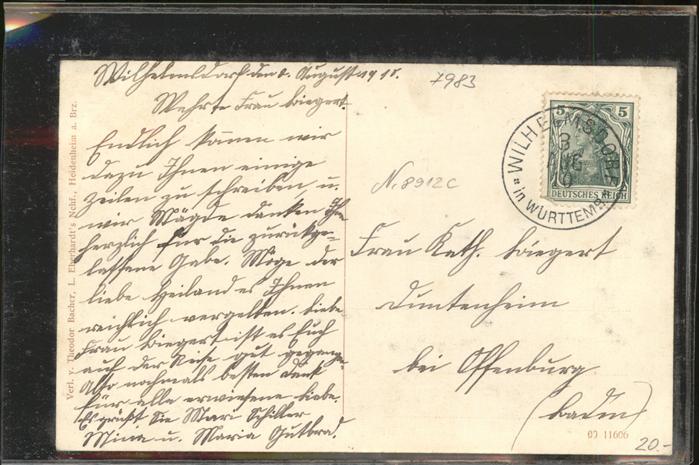 Wilhelmsdorf den 2. August 1910.
Werte Frau Biegert.
Endlich können wir
dazu Ihnen einige
Zeilen zu schreiben u.
wir Mägde danken Ihn
herzlich für die zurückge-
lassene Gabe. Möge der
liebe Heiland es Ihnen
reichlich vergelten. Liebe
Frau Biegert ist es Euch
auf der Reise gut gegange
Also nochmals besten Dank
für alle erwiesene Liebe.
Es grüßt Sie Mari Schiller
Mina u. Maria Gutbrod.
7983
N. 8912c
WILHELMSDORF
3
AUG
10
in WÜRTTEMB
5 5
DEUTSCHES REICH
Frau Kath. Biegert
Duntenheim
bei Offenburg
(Baden)
09 11606
20.-
Verl. v. Theodor Bacher, L. Eberhardt's Nchf., Heidenheim a. Brz.